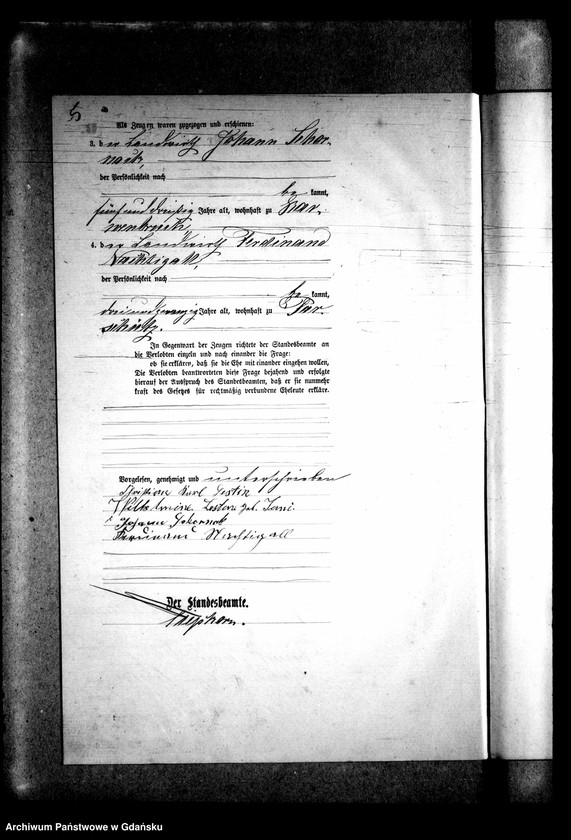 5
Als Zeugen waren zugezogen und erschienen:
3. der Landwirth Johann Schor-
nack,
der Persönlichkeit nach
be kannt,
fünf und dreißig Jahre alt, wohnhaft zu
4. der Landwirth Ferdinand
Nachtigall,
der Persönlichkeit nach
be kannt,
drei und zwanzig Jahre alt, wohnhaft zu Par-
schütz.
In Gegenwart der Zeugen richtete der Standesbeamte an
die Verlobten einzeln und nach einander die Frage:
ob sie erklären, daß sie die Ehe mit einander eingehen wollen,
Die Verlobten beantworteten diese Frage bejahend und erfolgte
hierauf der Ausspruch des Standesbeamten, daß er sie nunmehr
kraft des Gesetzes für rechtmäßig verbundene Eheleute erkläre.
Vorgelesen, genehmigt und unterschrieben
Christian Karl
Wilhelmine geb.
Johann Schornack
Ferdinand Nachtigall
Der Standesbeamte.
Archiwum Państwowe w Gdańsku